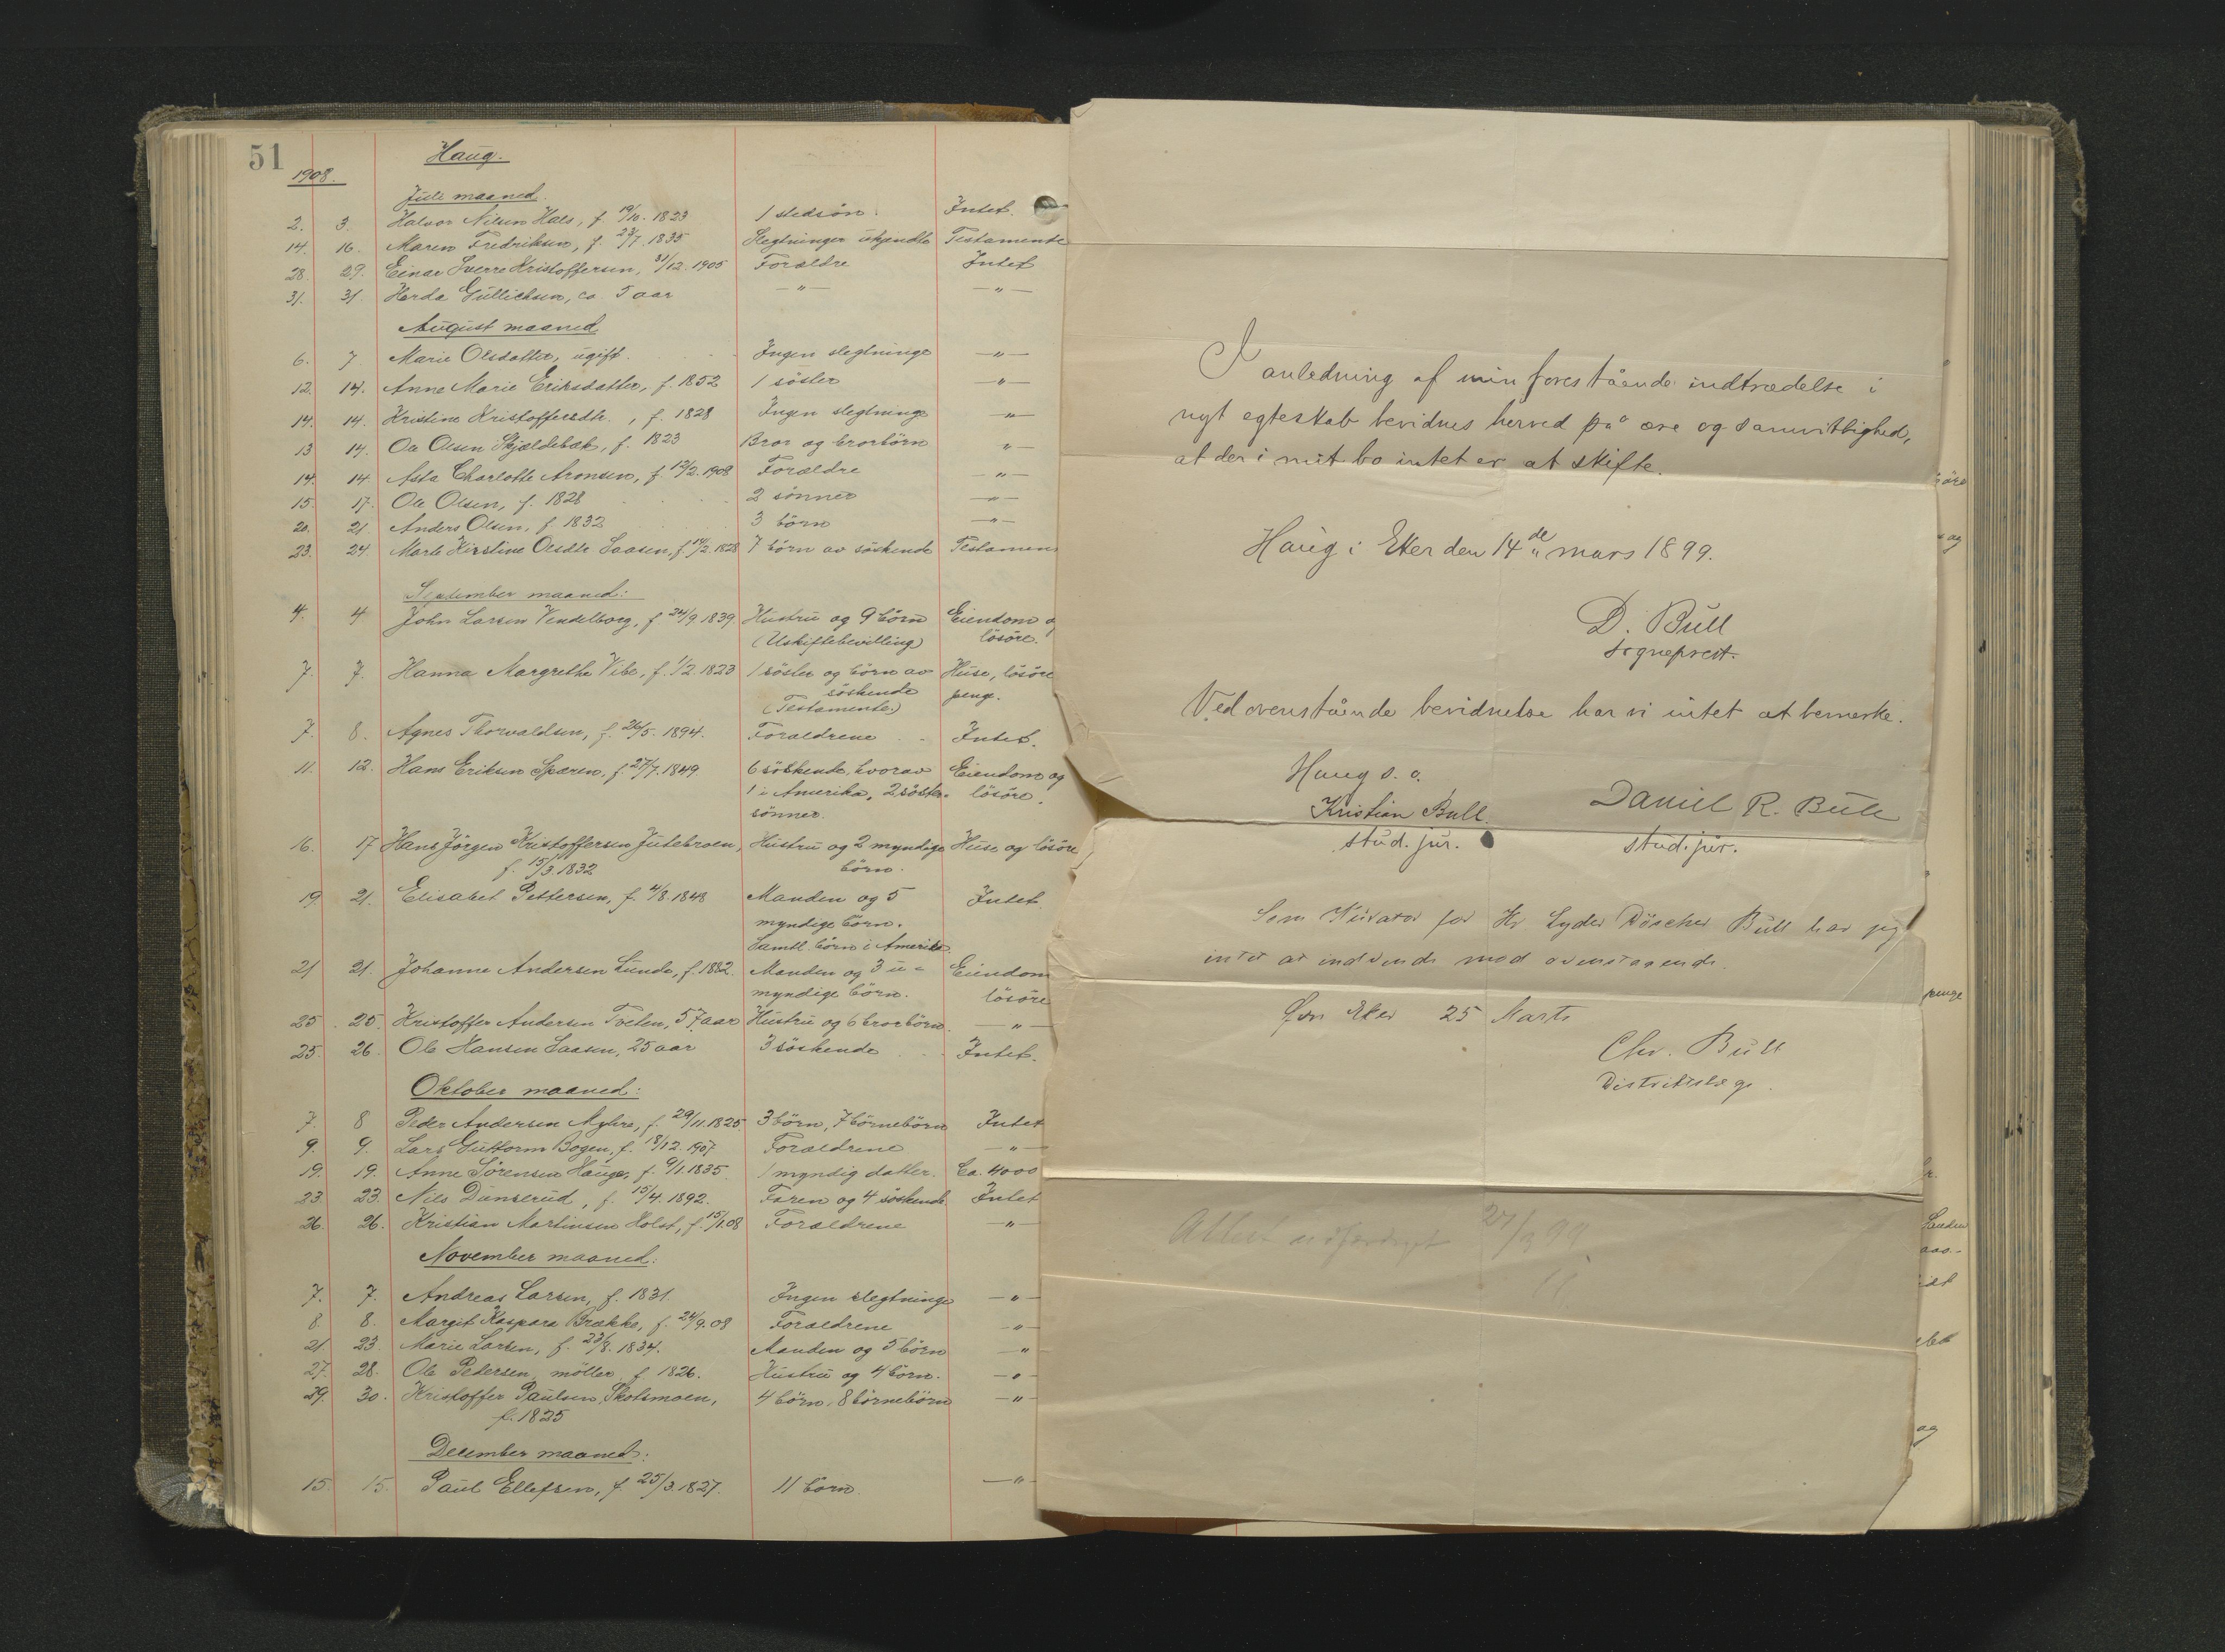 51
Haug.
1908.
Juli maaned.
2. 3. Halvor Nilsen Hals, f. 19/10. 1823 1 stedsön. Intet.
14. 16. Maren Fredriksen, f. 23/7. 1835 Slegtninger ukjendte Testamente
28. 29. Einar Sverre Kristoffersen, 31/12. 1905 Forældre Intet
31. 31. Herda Gullichsen, ca. 5 aar — " — — " —
August maaned
6. 7. Marie Olsdatter, ugift. Ingen slegtninge — " —
12. 14. Anne Marie Eriksdatter, f. 1852 1 söster — " —
14. 14. Kristine Kristoffersdtr., f. 1828 Ingen slegtninge — " —
13 14. Ole Olsen Skjældebæk, f. 1823 Bror og brorbörn " —
14. 14. Asta Charlotte Aronsen, f. 12/2. 1908 Forældre — " —
15. 17. Ole Olsen, f. 1828 2 sönner — " —
20. 21. Anders Olsen, f. 1832 3 börn — " —
23. 24. Marte Kirstine Olsdtr Saasen, f. 14/2. 1828 7 börn av söskende Testamen
September maaned:
4. 4 John Larsen Vendelborg, f. 24/9 1839 Hustru og 9 börn Eiendom o
(Uskiftebevilling) lösöre.
7. 7. Hanna Margrethe Vibe, f. 1/2. 1823 1 söster og börn av Huse, lösöre
söskende penge.
(Testamente.)
7. 8. Agnes Thorvaldsen, f. 26/5. 1894. Forældrene Intet.
11. 12. Hans Eriksen Sparen, f. 27/7. 1849. 6 söskende, hvorav Eiendom og
1 i Amerika, 2 söster- lösöre.
sönner.
16. 17 Hans Jörgen Kristoffersen Jutebroen, Hustru og 2 myndige Huse og lösöre
f. 15/3. 1832 börn.
19. 21. Elisabet Pettersen, f. 4/8. 1848 Manden og 5 Intet
myndige börn.
Samtl. börn i Amerika.
21 21. Johanne Andersen Lunde, f. 1882. Manden og 3 u- Eiendom
myndige börn. lösöre
25. 25. Kristoffer Andersen Tveten, 57 aar Hustru og 6 brorbörn. — " —
25. 26. Ole Hansen Saasen, 25 aar 3 söskende Intet.
Oktober maaned:
7. 8 Peder Andersen Myhre, f. 29/11. 1825. 3 börn, 7 börnebörn Intet
9. 9. Lars Guttorm Bogen, f. 18/12. 1907 Forældrene — " —
19. 19. Anne Sörensen Hauger, f. 9/1. 1835 1 myndig datter. Ca. 4000
23 23. Nils Dünserud, f. 15/4. 1892. Faren og 4 söskende Intet
26. 26. Kristian Martinsen Holst, f. 15/1. 08 Forældrene — " —
November maaned:
7. 7. Andreas Larsen, f. 1831. Ingen slegtninge — " —
8. 8. Margit Kaspara Brække, f. 24/9. 08 Forældrene — " —
21 23. Marie Larsen, f. 23/8. 1834. Manden og 5 börn — "
27. 28. Ole Pedersen, möller, f. 1826. Hustru og 4 börn. — " —
29. 30. Kristoffer Paulsen Skotsmoen, 4 börn, 8 börnebörn — " —
f. 1825
December maaned:
15. 15. Paul Ellefsen, f. 25/3. 1827. 11 börn. — " —
I anledning af min forestående indtrædelse i
nyt egteskab bevidnes herved på ære og samvittighed,
at der i mit bo intet er at skifte.
Haug i Eker den 14de mars 1899.
D. Bull
sogneprest.
Ved ovenstående bevidnelse har vi intet at bemerke.
Haug s. d.
Kristian Bull. Daniel R. Bull
stud. jur. stud. jur.
Som Kurator for Hr. Lyder Röscher Bull har jeg
intet at indvende mod ovenstaaende.
Övre Eker 25 Marts
Chr. Bull
Distriktslæge.
Attest udfærdiget 27/3 99
penge
og